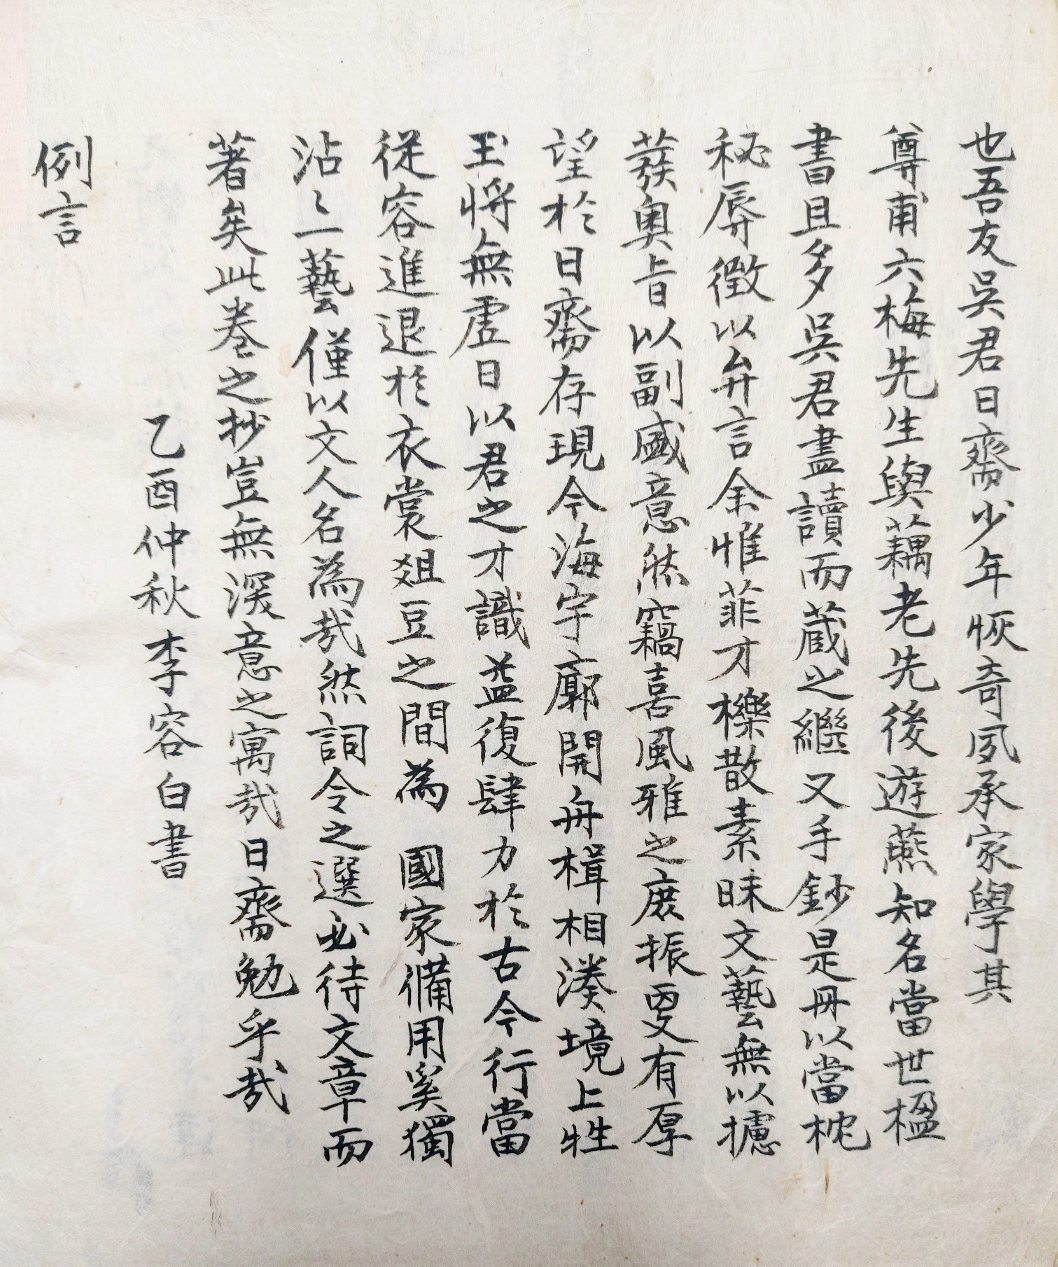 也吾友吳君日齋少年恢奇夙承家學其
尊甫六梅先生與藕老先後遊燕知名當世楹
書且多吳君盡讀而蔵之繼又手鈔是冊以當枕
秘辱徴以弁言余惟菲才櫟散素昧文藝無以攄
發奧旨以副盛意然竊喜風雅之庶振更有厚
望於日齋存現今海宇廓開舟楫相湊境上牲
玉將無虛日以君之才識益復肆力於古今行當
從容進退於衣裳爼豆之間為國家備用奚獨
沾〻一藝僅以文人名為哉然詞令之選必待文章而
著矣此巻之抄豈無深意之寓哉日齋勉乎哉
乙酉仲秋李容白書
例言